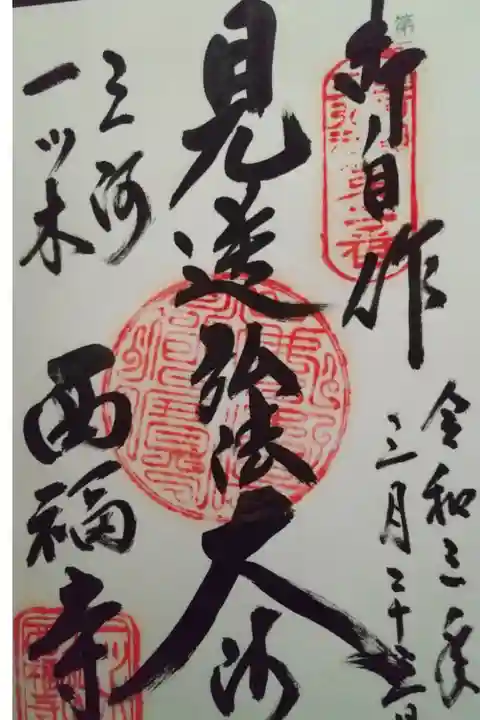 御自作
令和三年
三月二十三日
見送弘法大師
三河
一ッ木
西福寺